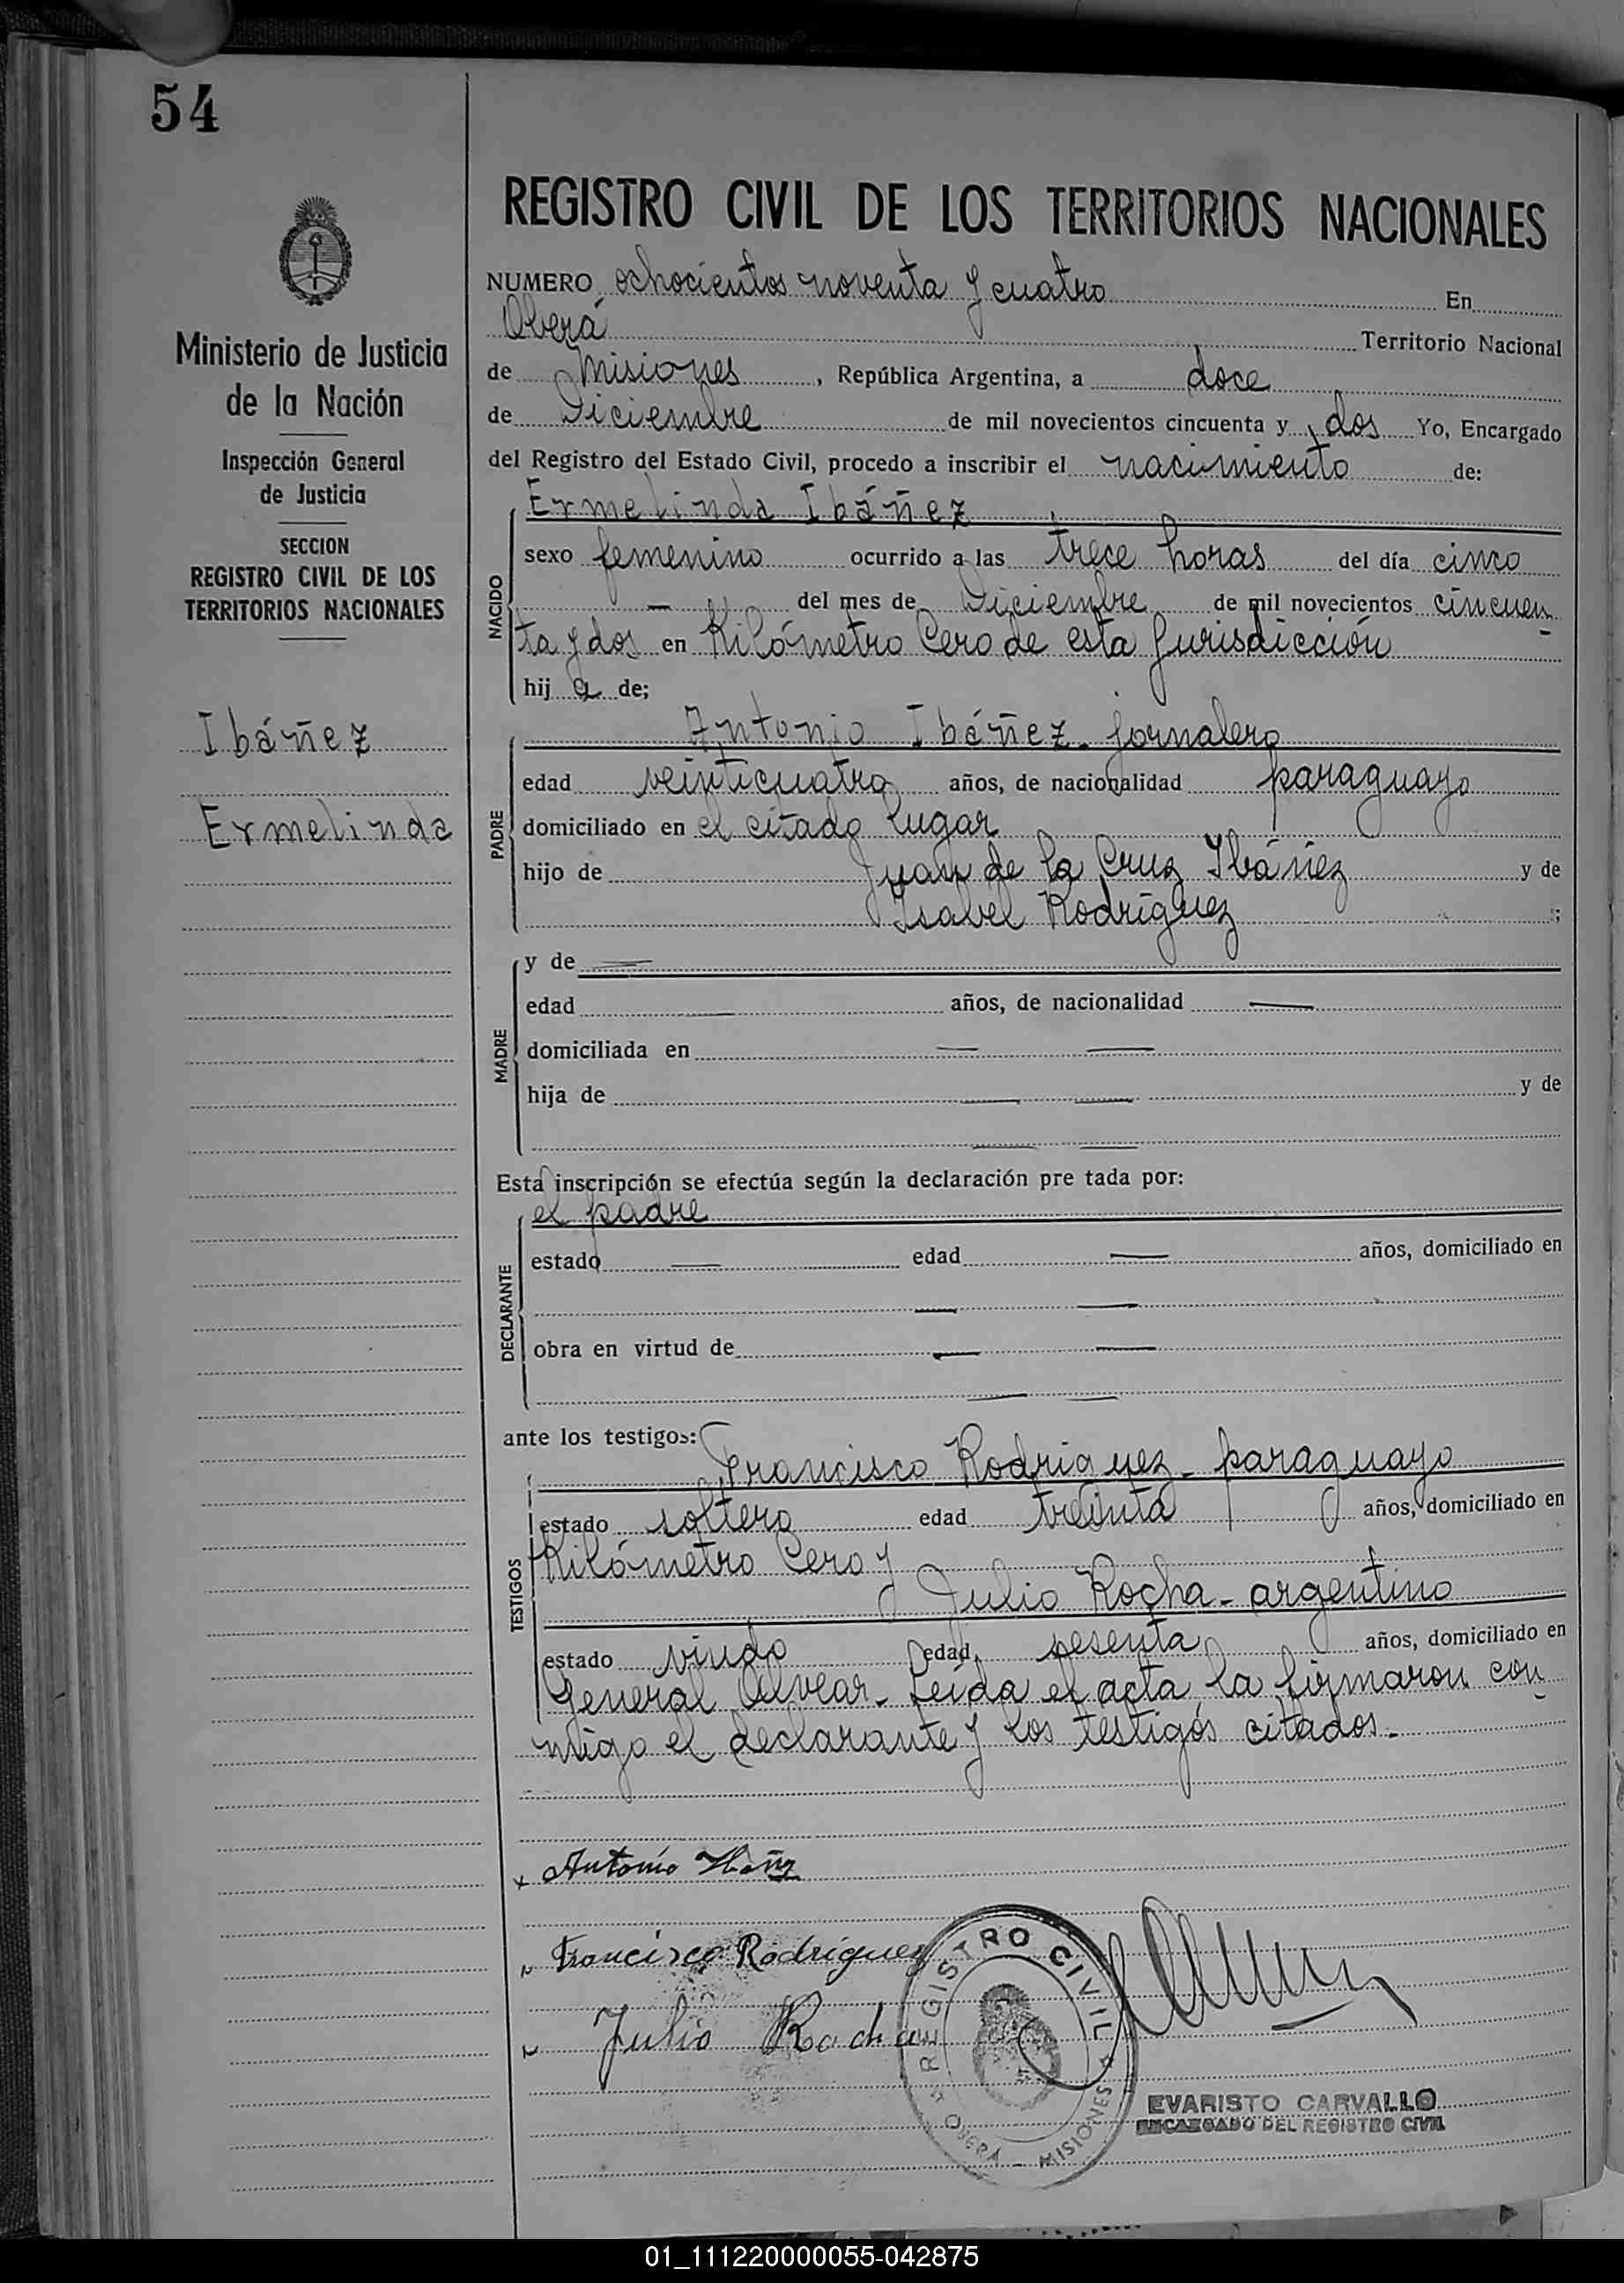 54
Ministerio de Justicia
de la Nación
Inspección General
de Justicia
SECCION
REGISTRO CIVIL DE LOS
TERRITORIOS NACIONALES
Ibáñez
Ermelinda
REGISTRO CIVIL DE LOS TERRITORIOS NACIONALES
NUMERO ochocientos noventa y cuatro En
Oberá Territorio Nacional
de Misiones, República Argentina, a doce
de Diciembre de mil novecientos cincuenta y dos Yo, Encargado
del Registro del Estado Civil, procedo a inscribir el nacimiento de:
Ermelinda Ibáñez
NACIDO
sexo femenino ocurrido a las trece horas del día cinco
— del mes de Diciembre de mil novecientos cincuen
ta y dos en Kilómetro Cero de esta Jurisdicción
hij a de;
Antonio Ibáñez - jornalero
PADRE
edad veinticuatro años, de nacionalidad paraguayo
domiciliado en el citado lugar
hijo de Juan de la Cruz Ibáñez y de
Isabel Rodríguez ;
MADRE
y de —
edad — años, de nacionalidad —
domiciliada en — —
hija de — — y de
— —
Esta inscripción se efectúa según la declaración pre tada por:
el padre
DECLARANTE
estado — edad — años, domiciliado en
— —
obra en virtud de — —
— —
ante los testigos:
Francisco Rodriguez - paraguayo
TESTIGOS
estado soltero edad treinta años, domiciliado en
Kilómetro Cero y
Julio Rocha - argentino
estado viudo edad sesenta años, domiciliado en
General Alvear - Leída el acta, la firmaron con
migo el declarante y los testigos citados.-
x Antonio Ibañz
Francisco Rodríguez
Julio Rocha
REGISTRO CIVIL
OBERÁ - MISIONES
EVARISTO CARVALLO
ENCARGADO DEL REGISTRO CIVIL
01_111220000055-042875